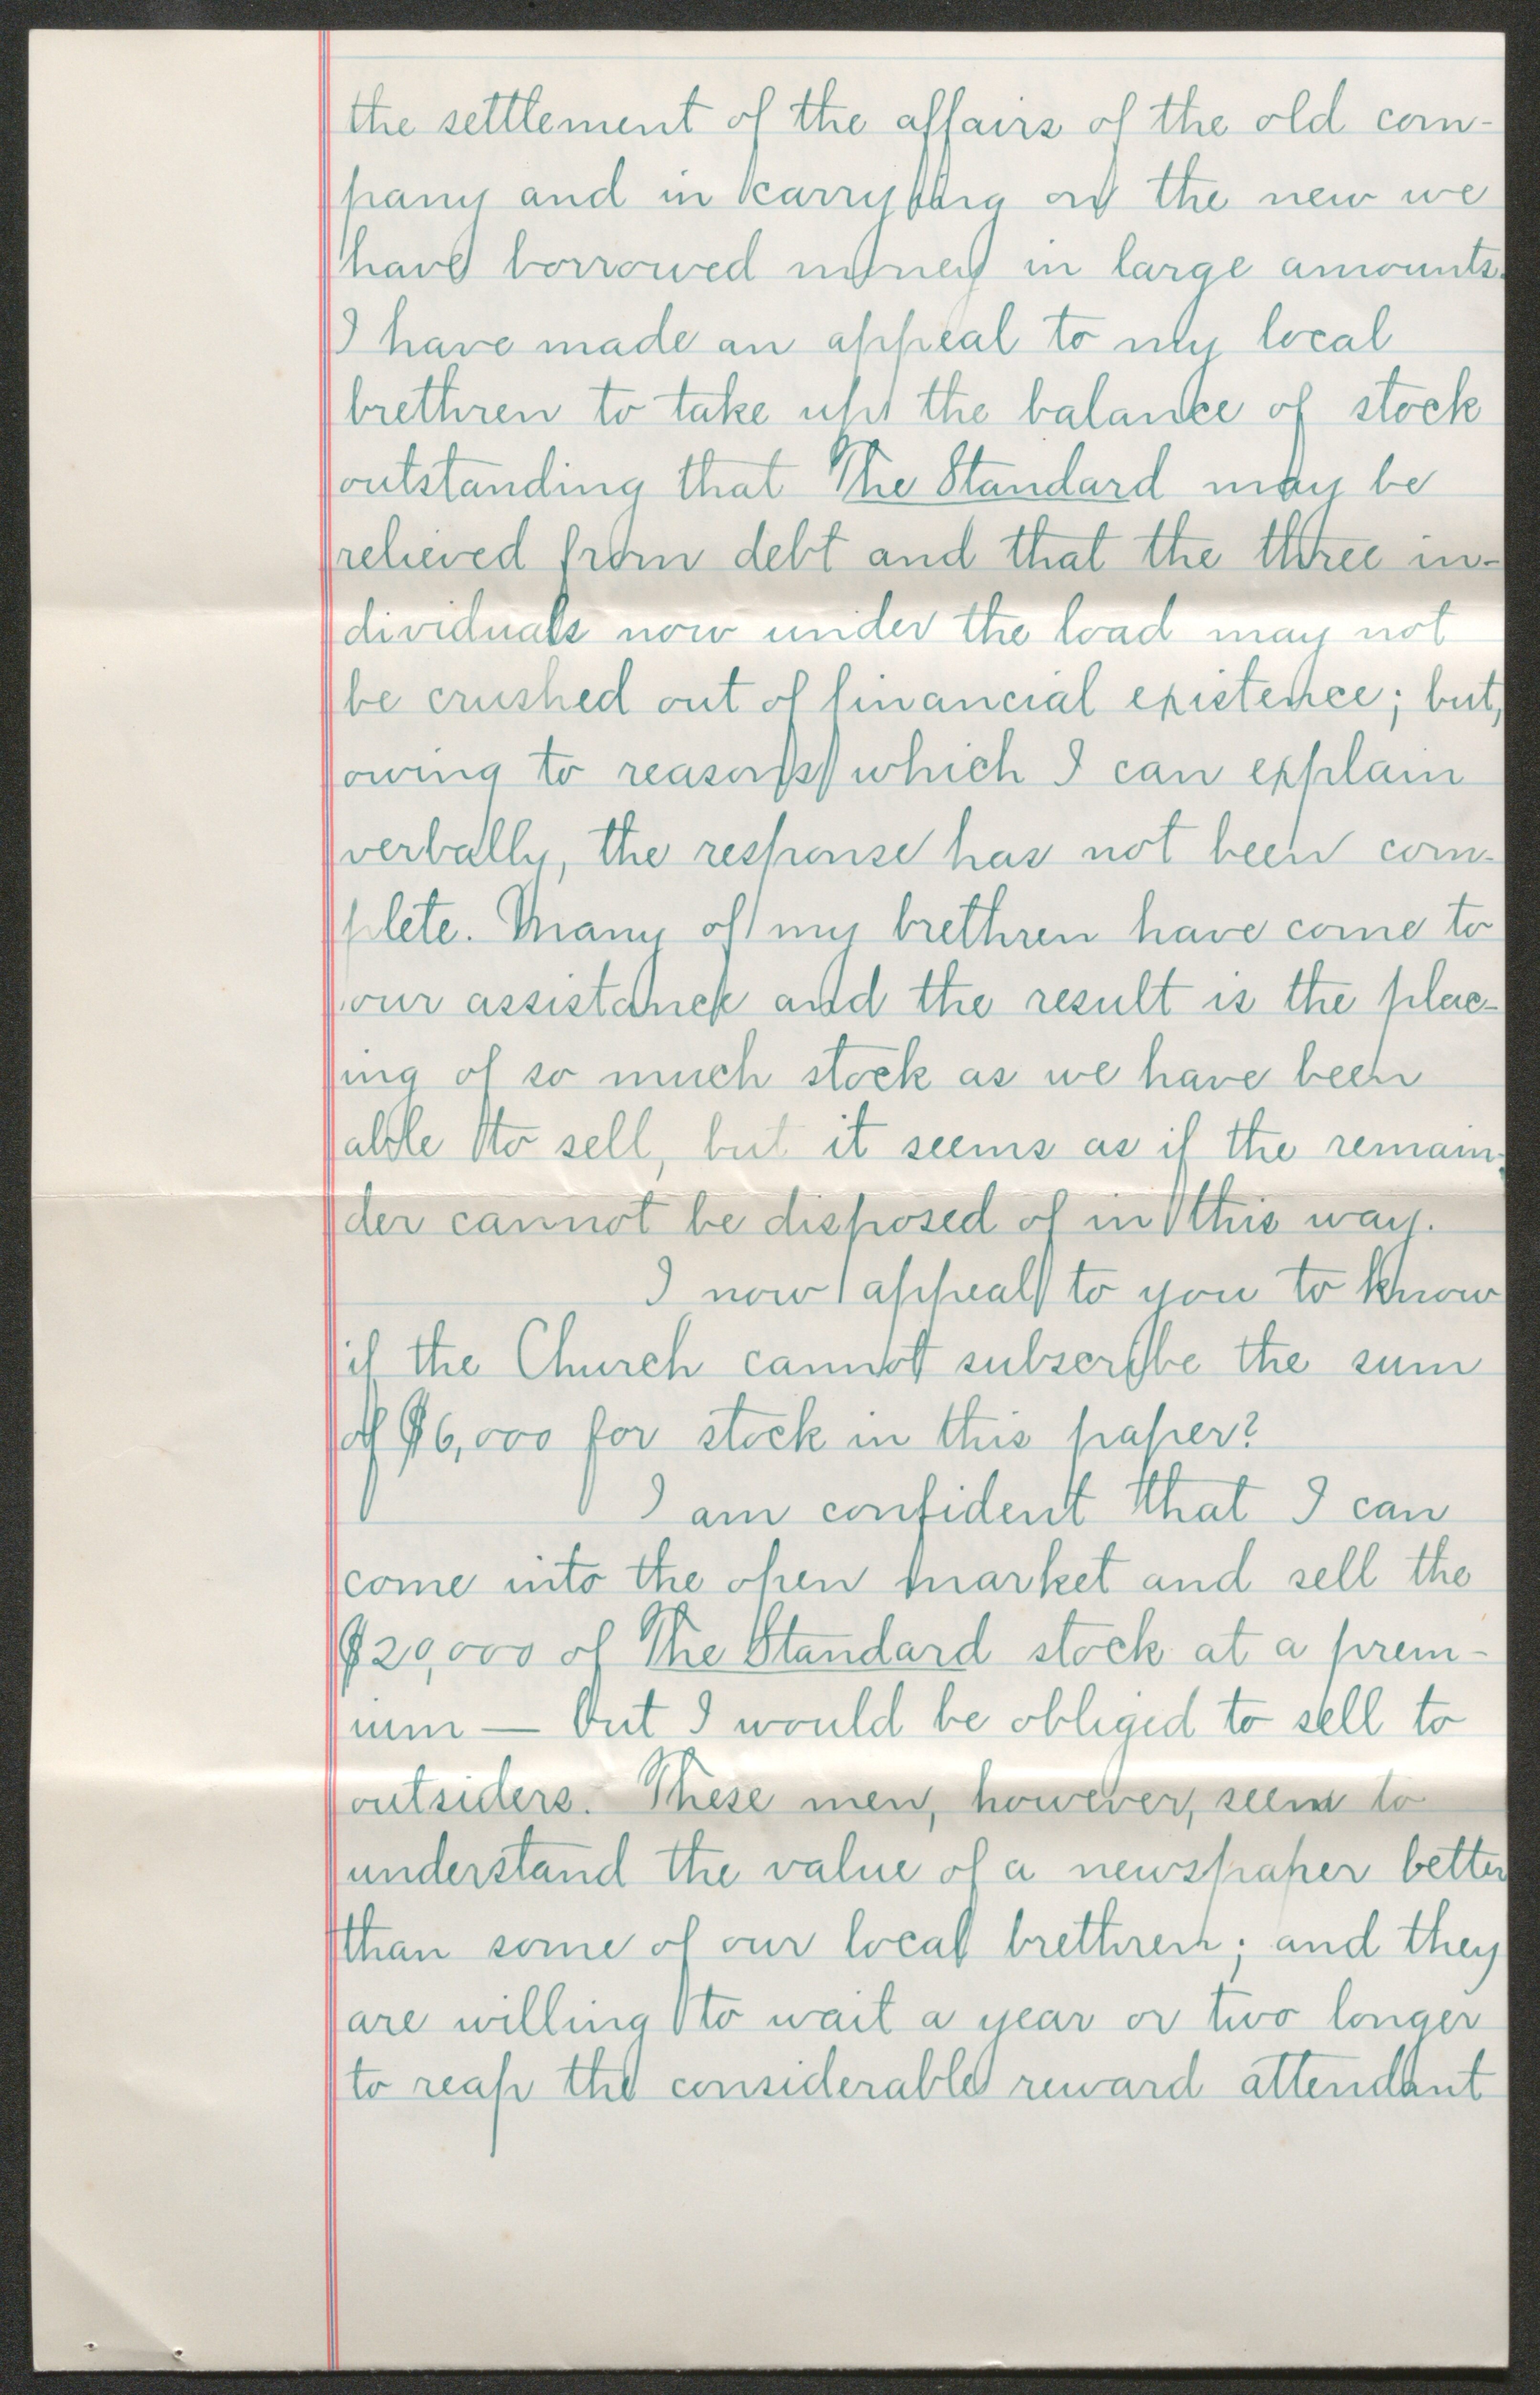 the settlement of the affairs of the old com-
pany and in carrying on the new we
have borrowed money in large amounts.
I have made an appeal to my local
brethren to take up the balance of stock
outstanding that The Standard may be
relieved from debt and that the three in-
dividuals now under the load may not
be crushed out of financial existence; but,
owing to reasons which I can explain
verbally, the response has not been com-
plete. Many of my brethren have come to
our assistance and the result is the plac-
ing of so much stock as we have been
able to sell, but it seems as if the remain-
der cannot be disposed of in this way.
I now appeal to you to know
if the Church cannot subscribe the sum
of $6,000 for stock in this paper?
I am confident that I can
come into the open market and sell the
$20,000 of The Standard stock at a prem-
ium — but I would be obliged to sell to
outsiders. These men, however, seem to
understand the value of a newspaper better
than some of our local brethren; and they
are willing to wait a year or two longer
to reap the considerable reward attendant